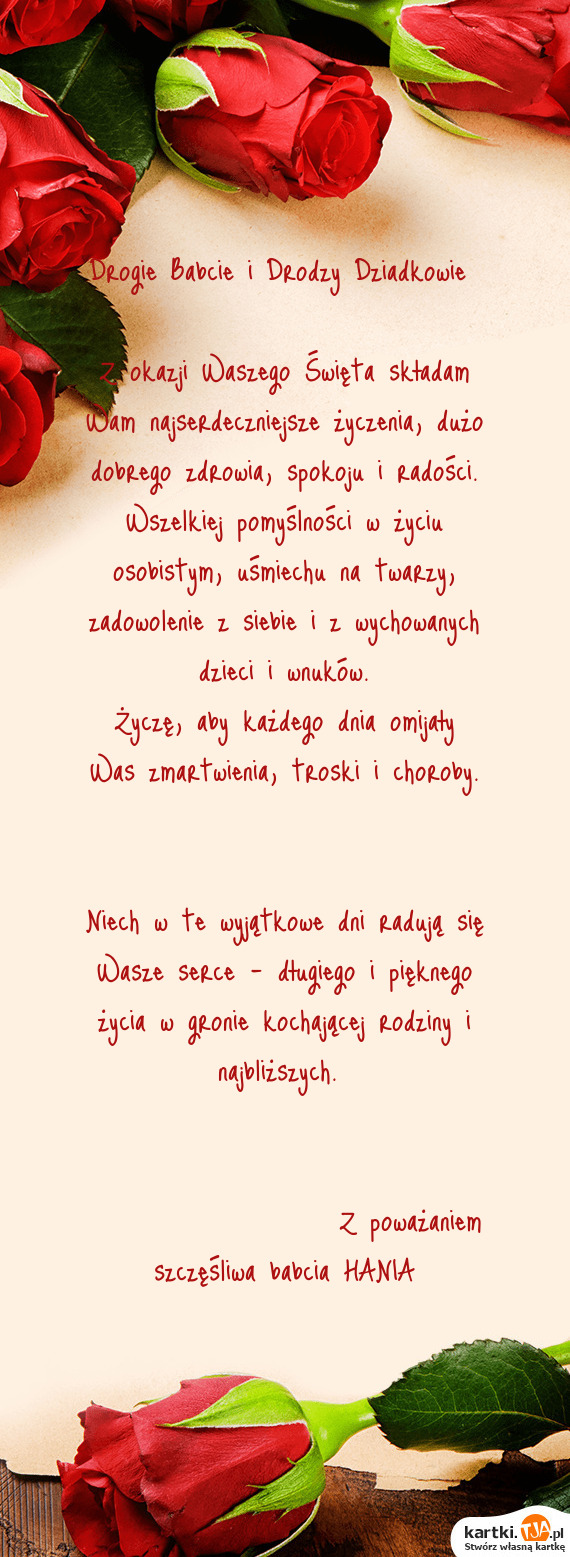 Drogie Babcie i Drodzy Dziadkowie
Z okazji Waszego Święta składam
Wam najserdeczniejsze życzenia, dużo
dobrego zdrowia, spokoju i radości.
Wszelkiej pomyślności w życiu
osobistym, uśmiechu na twarzy,
zadowolenie z siebie i z wychowanych
dzieci i wnuków.
Życzę, aby każdego dnia omijały
Was zmartwienia, troski i choroby.
Niech w te wyjątkowe dni radują się
Wasze serce - długiego i pięknego
życia w gronie kochającej rodziny i
najbliższych.
Z poważaniem
szczęśliwa babcia HANIA
kartki.TJA.pl
Stwórz własną kartkę